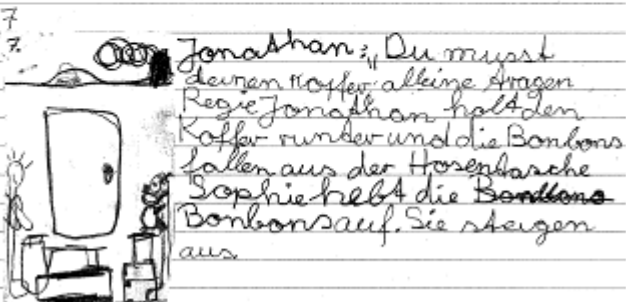 7
7.
Jonathan: „Du musst
deinen Koffer alleine tragen
Regie Jonathan holt den
Koffer runter und die Bonbons
fallen aus der Hosentasche
Sophie hebt die Bonbons
Bonbons auf. Sie steigen
aus